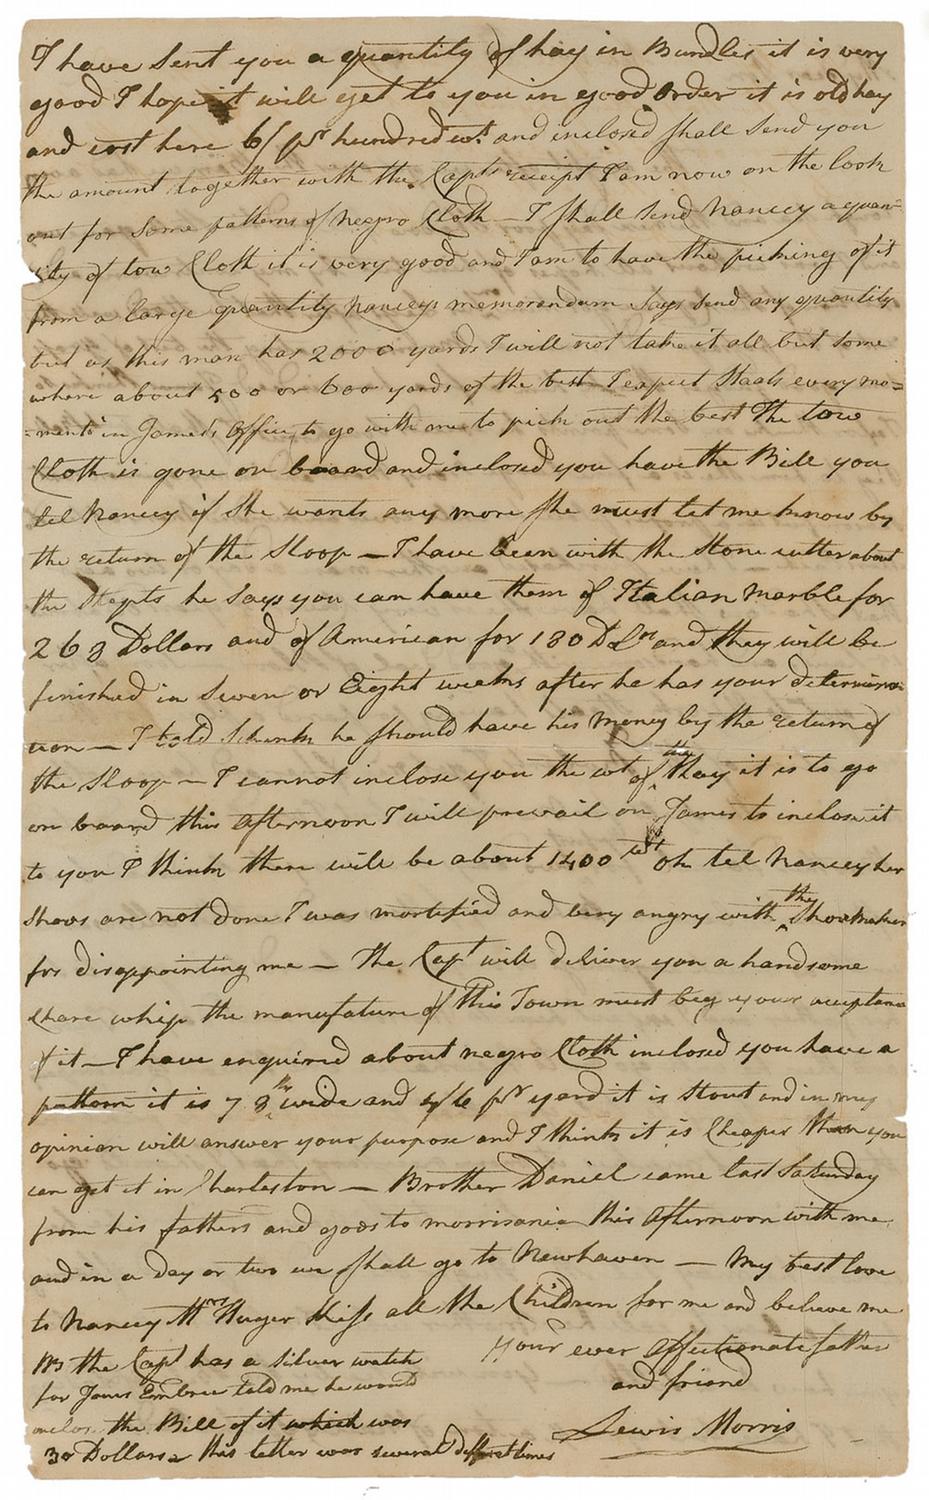 I have sent you a quantity of hay in Bundles it is very
good I hope it will get to you in good order it is old hay
and cost here 6/ pr hundred wt. and inclosed shall send you
the amount together with the Capts receipt I am now on the look
out for some patterns of negro Cloth — I shall send Nancey a quan-
tity of tow Cloth it is very good and I am to have the picking of it
from a large quantity Nanceys memorandum says send any quantity
but as this man has 2000 yards I will not take it all but some
where about 500 or 600 yards of the best I expect Staats every mo=
=ment in James's Office to go with me to pick out the best The tow
Cloth is gone on board and inclosed you have the Bill you
tel Nancey if she wants any more she must let me know by
the return of the Sloop — I have been with the Stone cutter about
the Stepts he says you can have them of Italian marble for
263 Dollars and of American for 130 Dolrs and they will be
finished in Seven or Eight weeks after he has your determina-
tion — I told Schenk he should have his money by the return of
the Sloop — I cannot inclose you the wt of the Hay it is to go
on board this Afternoon I will prevail on James to inclose it
to you I think there will be about 1400 wt oh tel Nancey her
shoos are not done I was mortified and very angry with the Shoemaker
for disappointing me — the Capt will deliver you a handsome
Chare whip the manufature of this Town must beg your acceptance
of it — I have enquired about negro Cloth inclosed you have a
pattorn it is 7 8th wide and 4/6 pr yard it is Stout and in my
opinion will answer your purpose and I think it is Cheaper than you
can get it in Charleston — Brother Daniel came last Saturday
from his fathers and goos to morrisania this Afternoon with me
and in a day or two we shall go to Newhaven — My best love
to Nancey Mrs Huger Kiss all the Children for me and believe me
your ever affectionate father
and friend
Lewis Morris
the Capt has a Silver watch
for James Embree told me he would
inclos the Bill of it which was
30 Dollars this letter was several different times